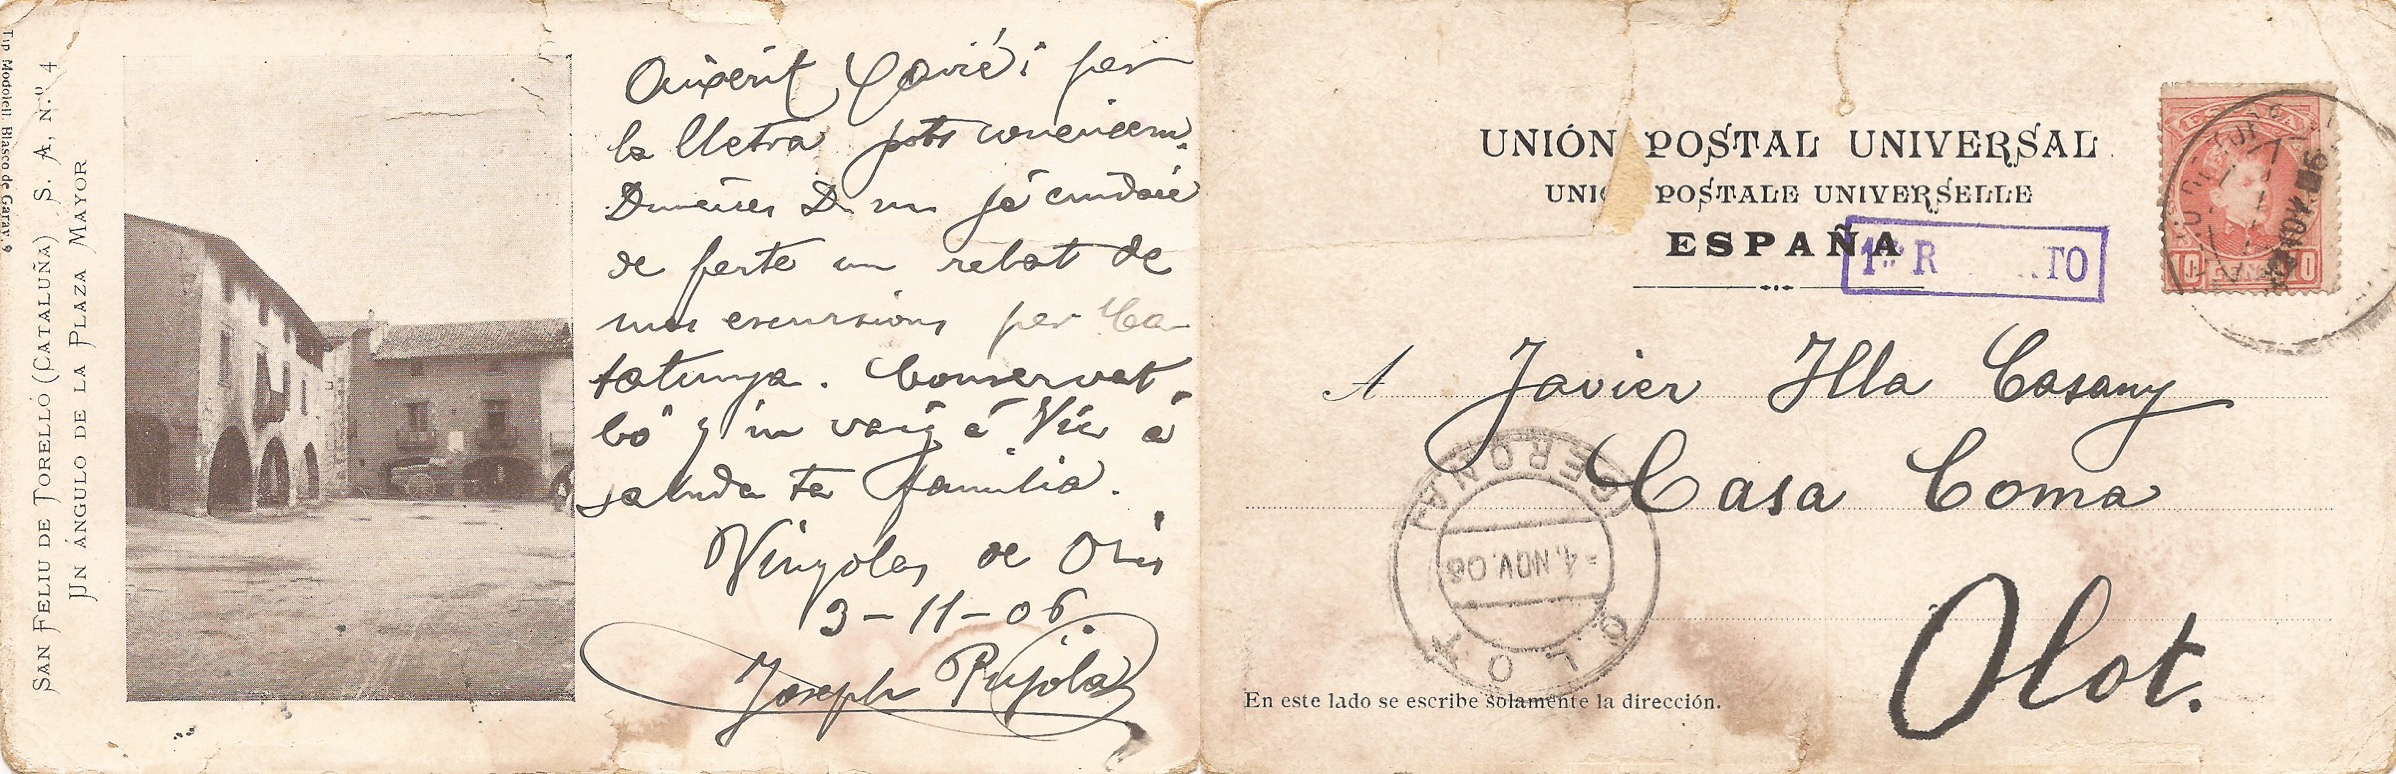 Tip. Modolell. Blasco de Garay. 9
SAN FELIU DE TORELLÓ (CATALUÑA) S. A, N.º 4
UN ÁNGULO DE LA PLAZA MAYOR
Xavié i per
la lletra pots
un já cuidaré
de ferte un rebot de
mas escursions per Ca-
talunya. Conservat
bó y in vaig á Vic á
saluda ta familia.
Vinyolas de Oris
3-11-06.
Joseph Pujola
UNIÓN POSTAL UNIVERSAL
UNI POSTALE UNIVERSELLE
ESPAÑA
1er R TO
ESPAÑA
10 CENTS 10
A Javier Illa Casany
Casa Coma
Olot.
GERONA
-4.NOV.06
OLOT
En este lado se escribe solamente la dirección.